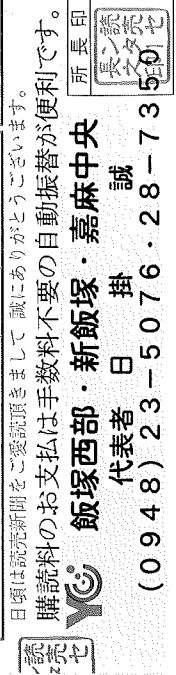 日頃は読売新聞をご愛読頂きまして誠にありがとうございます。
購読料のお支払は手数料不要の自動振替が便利です。
YC 飯塚西部・新飯塚・嘉麻中央
代表者 日掛 誠
(0948) 23-5076・28-7350
所長印